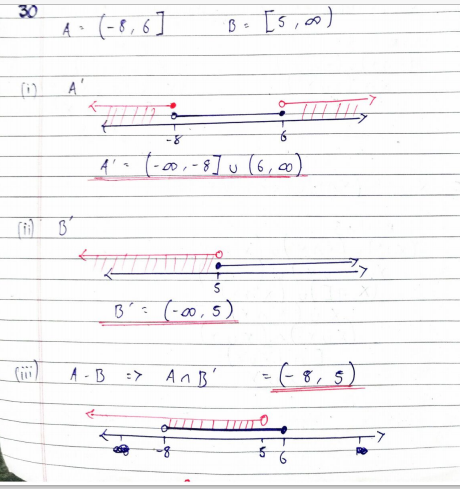 30
A = (-8, 6] B = [5, ∞)
(i) A'
-8 6
A' = (-∞, -8] ∪ (6, ∞)
(ii) B'
5
B' = (-∞, 5)
(iii) A - B => A ∩ B' = (-8, 5)
-8 5 6